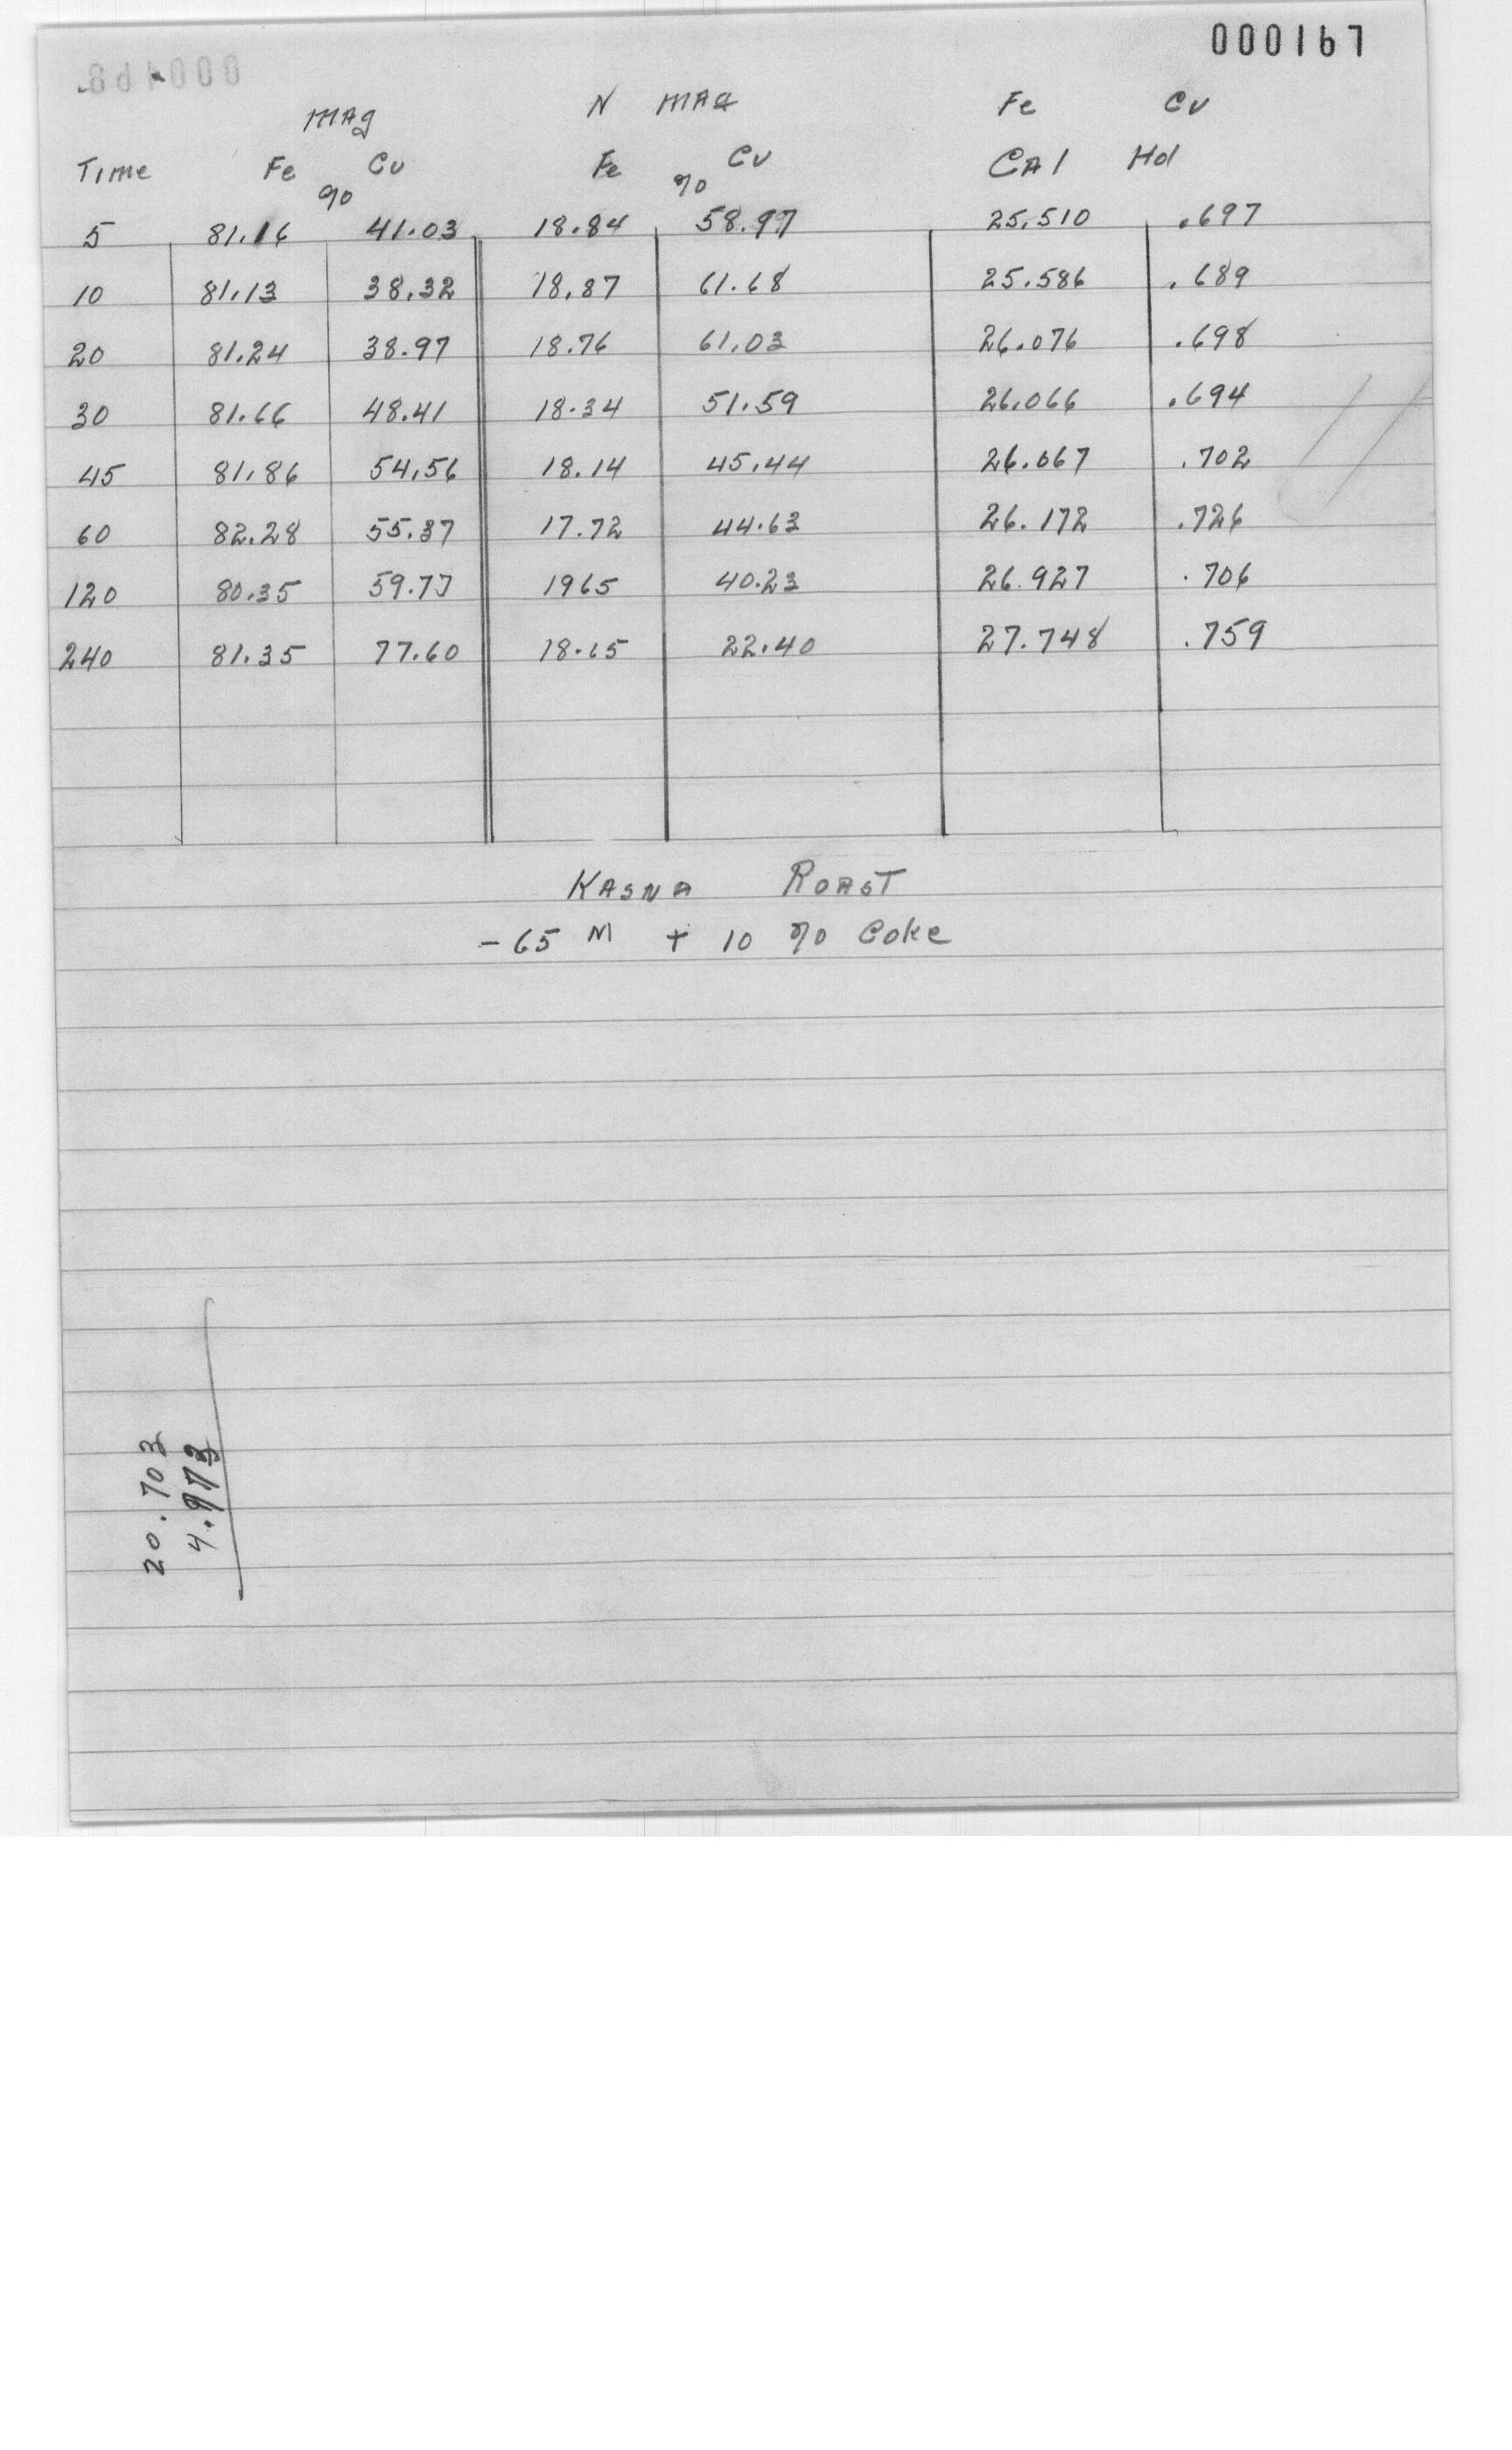 000167
Mag N Mag Fe Cu
Time Fe % Cu Fe % Cu Cal Hd
5 81.16 41.03 18.84 58.97 25.510 .697
10 81.13 38.32 18.87 61.68 25.586 .689
20 81.24 38.97 18.76 61.03 26.076 .698
30 81.66 48.41 18.34 51.59 26.066 .694
45 81.86 54.56 18.14 45.44 26.067 .702
60 82.28 55.37 17.72 44.63 26.172 .726
120 80.35 59.77 1965 40.23 26.927 .706
240 81.35 77.60 18.65 22.40 27.748 .759
Kasna Roast
-65 M + 10 % Coke
20.703
4.973